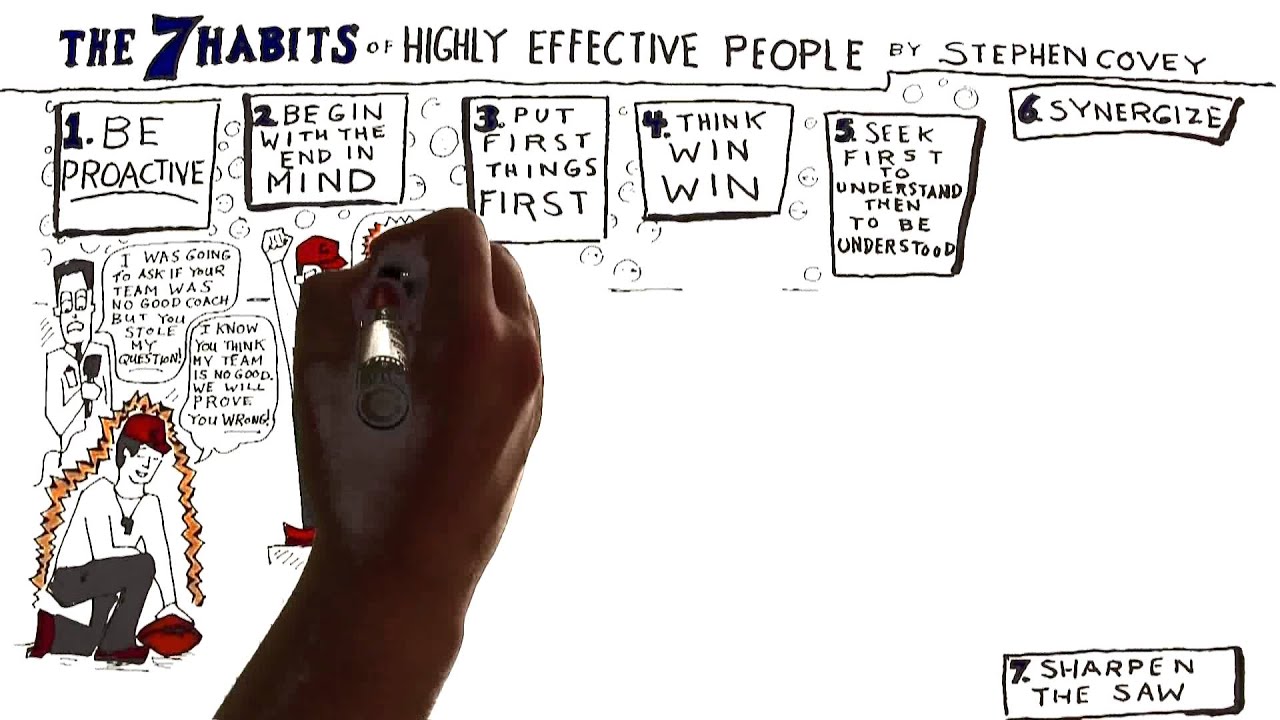 THE 7 HABITS OF HIGHLY EFFECTIVE PEOPLE BY STEPHEN COVEY
1. BE
PROACTIVE
2. BEGIN
WITH THE
END IN
MIND
3. PUT
FIRST
THINGS
FIRST
4. THINK
WIN
WIN
5. SEEK
FIRST
TO
UNDERSTAND
THEN
TO BE
UNDERSTOOD
6. SYNERGIZE
I WAS GOING
TO ASK IF YOUR
TEAM WAS
NO GOOD COACH
BUT YOU
STOLE
MY
QUESTION!
I KNOW
YOU THINK
MY TEAM
IS NO GOOD.
WE WILL
PROVE
YOU WRONG!
7. SHARPEN
THE SAW